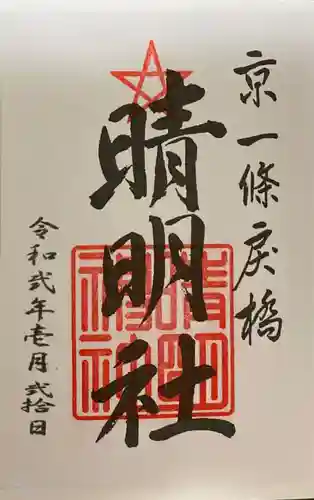 京一條戻橋
晴明社
令和弐年壱月弐拾日
晴明
神社